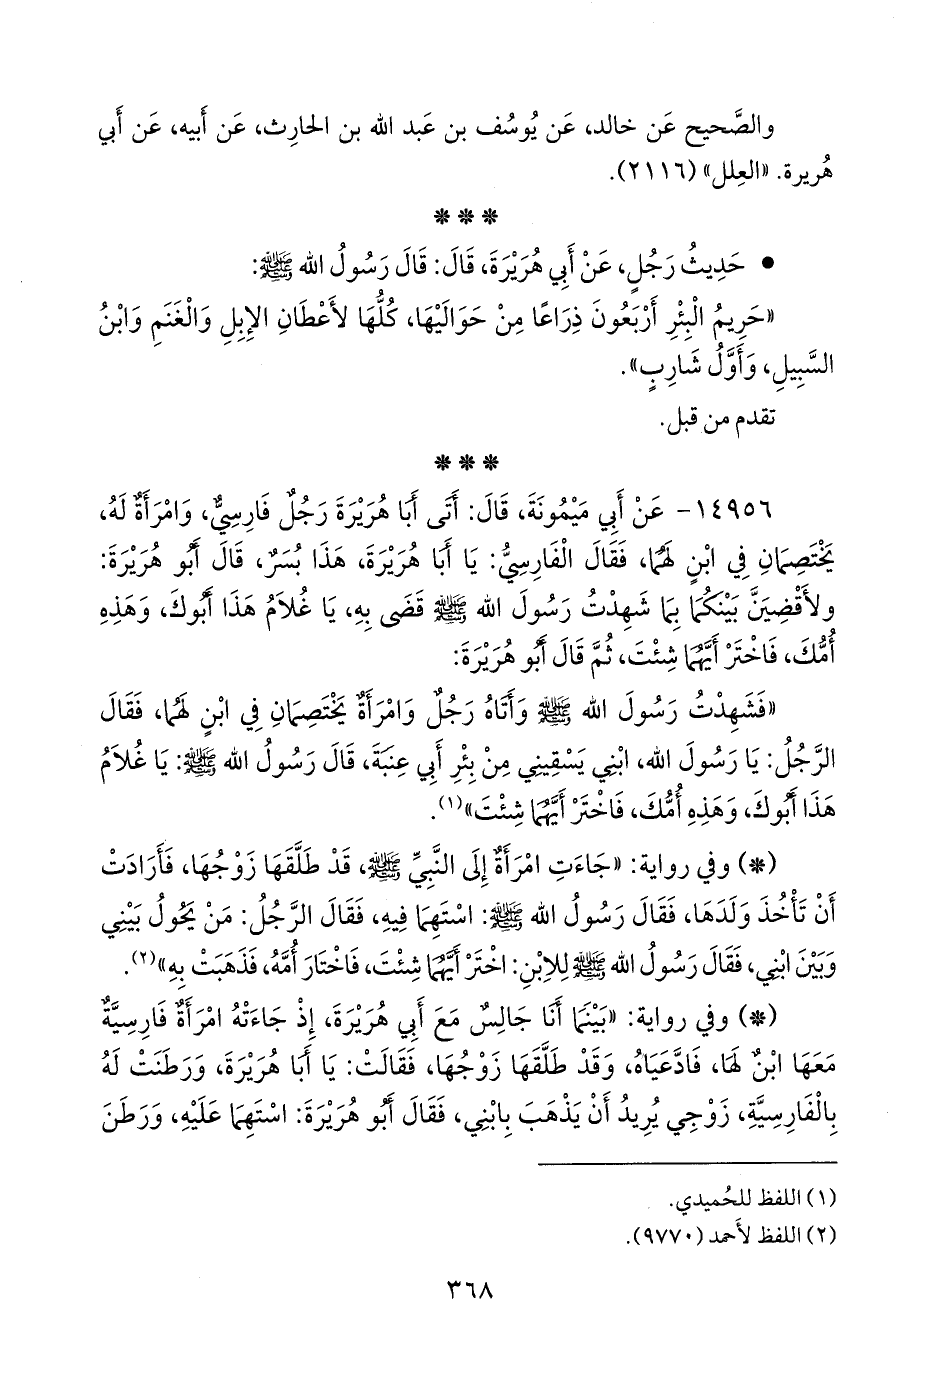 والصَّحيح عَن خالد، عَن يُوسُف بن عَبد الله بن الحارِث، عَن أَبيه، عَن أَبي
هُريرة. «العِلل» (٢١١٦).
* * *
• حَدِيثُ رَجُلٍ، عَنْ أَبِي هُرَيْرَةَ، قَالَ: قَالَ رَسُولُ الله ﷺ:
«حَرِيمُ الْبِئْرِ أَرْبَعُونَ ذِرَاعًا مِنْ حَوَالَيْهَا، كُلُّهَا لأَعْطَانِ الإِبِلِ وَالْغَنَمِ وَابْنُ
السَّبِيلِ، وَأَوَّلُ شَارِبٍ».
تقدم من قبل.
* * *
١٤٩٥٦- عَنْ أَبِي مَيْمُونَةَ، قَالَ: أَتَى أَبَا هُرَيْرَةَ رَجُلٌ فَارِسِيٌّ، وَامْرَأَةٌ لَهُ،
يَخْتَصِمَانِ فِي ابْنٍ لَهُمَا، فَقَالَ الْفَارِسِيُّ: يَا أَبَا هُرَيْرَةَ، هَذَا بُسَرٌ، قَالَ أَبُو هُرَيْرَةَ:
ولأَقْضِيَنَّ بَيْنَكُمَا بِمَا شَهِدْتُ رَسُولَ الله ﷺ قَضَى بِهِ، يَا غُلاَمُ هَذَا أَبُوكَ، وَهَذِهِ
أُمُّكَ، فَاخْتَرْ أَيَّهُمَا شِئْتَ، ثُمَّ قَالَ أَبُو هُرَيْرَةَ:
«فَشَهِدْتُ رَسُولَ الله ﷺ وَأَتَاهُ رَجُلٌ وَامْرَأَةٌ يَخْتَصِمَانِ فِي ابْنٍ لَهُمَا، فَقَالَ
الرَّجُلُ: يَا رَسُولَ الله، ابْنِي يَسْقِينِي مِنْ بِئْرِ أَبِي عِنَبَةَ، قَالَ رَسُولُ الله ﷺ: يَا غُلاَمُ
هَذَا أَبُوكَ، وَهَذِهِ أُمُّكَ، فَاخْتَرْ أَيَّهُمَا شِئْتَ»(١).
(*) وفي رواية: «جَاءَتِ امْرَأَةٌ إِلَى النَّبِيِّ ﷺ، قَدْ طَلَّقَهَا زَوْجُهَا، فَأَرَادَتْ
أَنْ تَأْخُذَ وَلَدَهَا، فَقَالَ رَسُولُ الله ﷺ: اسْتَهِمَا فِيهِ، فَقَالَ الرَّجُلُ: مَنْ يَحُولُ بَيْنِي
وَبَيْنَ ابْنِي، فَقَالَ رَسُولُ الله ﷺ لِلاِبْنِ: اخْتَرْ أَيَّهُمَا شِئْتَ، فَاخْتَارَ أُمَّهُ، فَذَهَبَتْ بِهِ»(٢).
(*) وفي رواية: «بَيْنَمَا أَنَا جَالِسٌ مَعَ أَبِي هُرَيْرَةَ، إِذْ جَاءَتْهُ امْرَأَةٌ فَارِسِيَّةٌ
مَعَهَا ابْنٌ لَهَا، فَادَّعَيَاهُ، وَقَدْ طَلَّقَهَا زَوْجُهَا، فَقَالَتْ: يَا أَبَا هُرَيْرَةَ، وَرَطَنَتْ لَهُ
بِالْفَارِسِيَّةِ، زَوْجِي يُرِيدُ أَنْ يَذْهَبَ بِابْنِي، فَقَالَ أَبُو هُرَيْرَةَ: اسْتَهِمَا عَلَيْهِ، وَرَطَنَ
(١) اللفظ للحُميدي.
(٢) اللفظ لأَحمد (٩٧٧٠).
٣٦٨